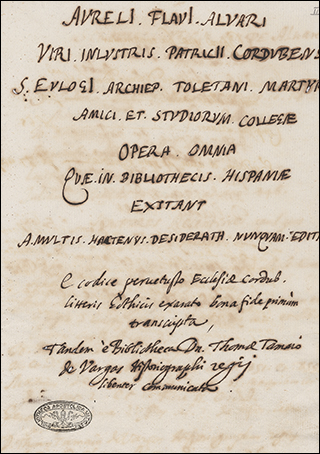 AVRELI. FLAVI. ALVARI
VIRI. INLVSTRIS. PATRICII. CORDVBENS
S. EVLOGI. ARCHIEP. TOLETANI. MARTYR
AMICI. ET. STVDIORVM. COLLEGÆ
OPERA. OMNIA
QVÆ. IN. BIBLIOTHECIS. HISPANIÆ
EXSTANT
A. MVLTIS. HACTENVS. DESIDERATA. NVNQVAM. EDITA
e codice pervetusto Ecclesiæ Cordub.
litteris Gothicis exarato bona fide primùm
transcripta,
Tandem è Bibliotheca Dn. Thomæ Tamaio
de Vargas Historiographi regij
libenter communicata